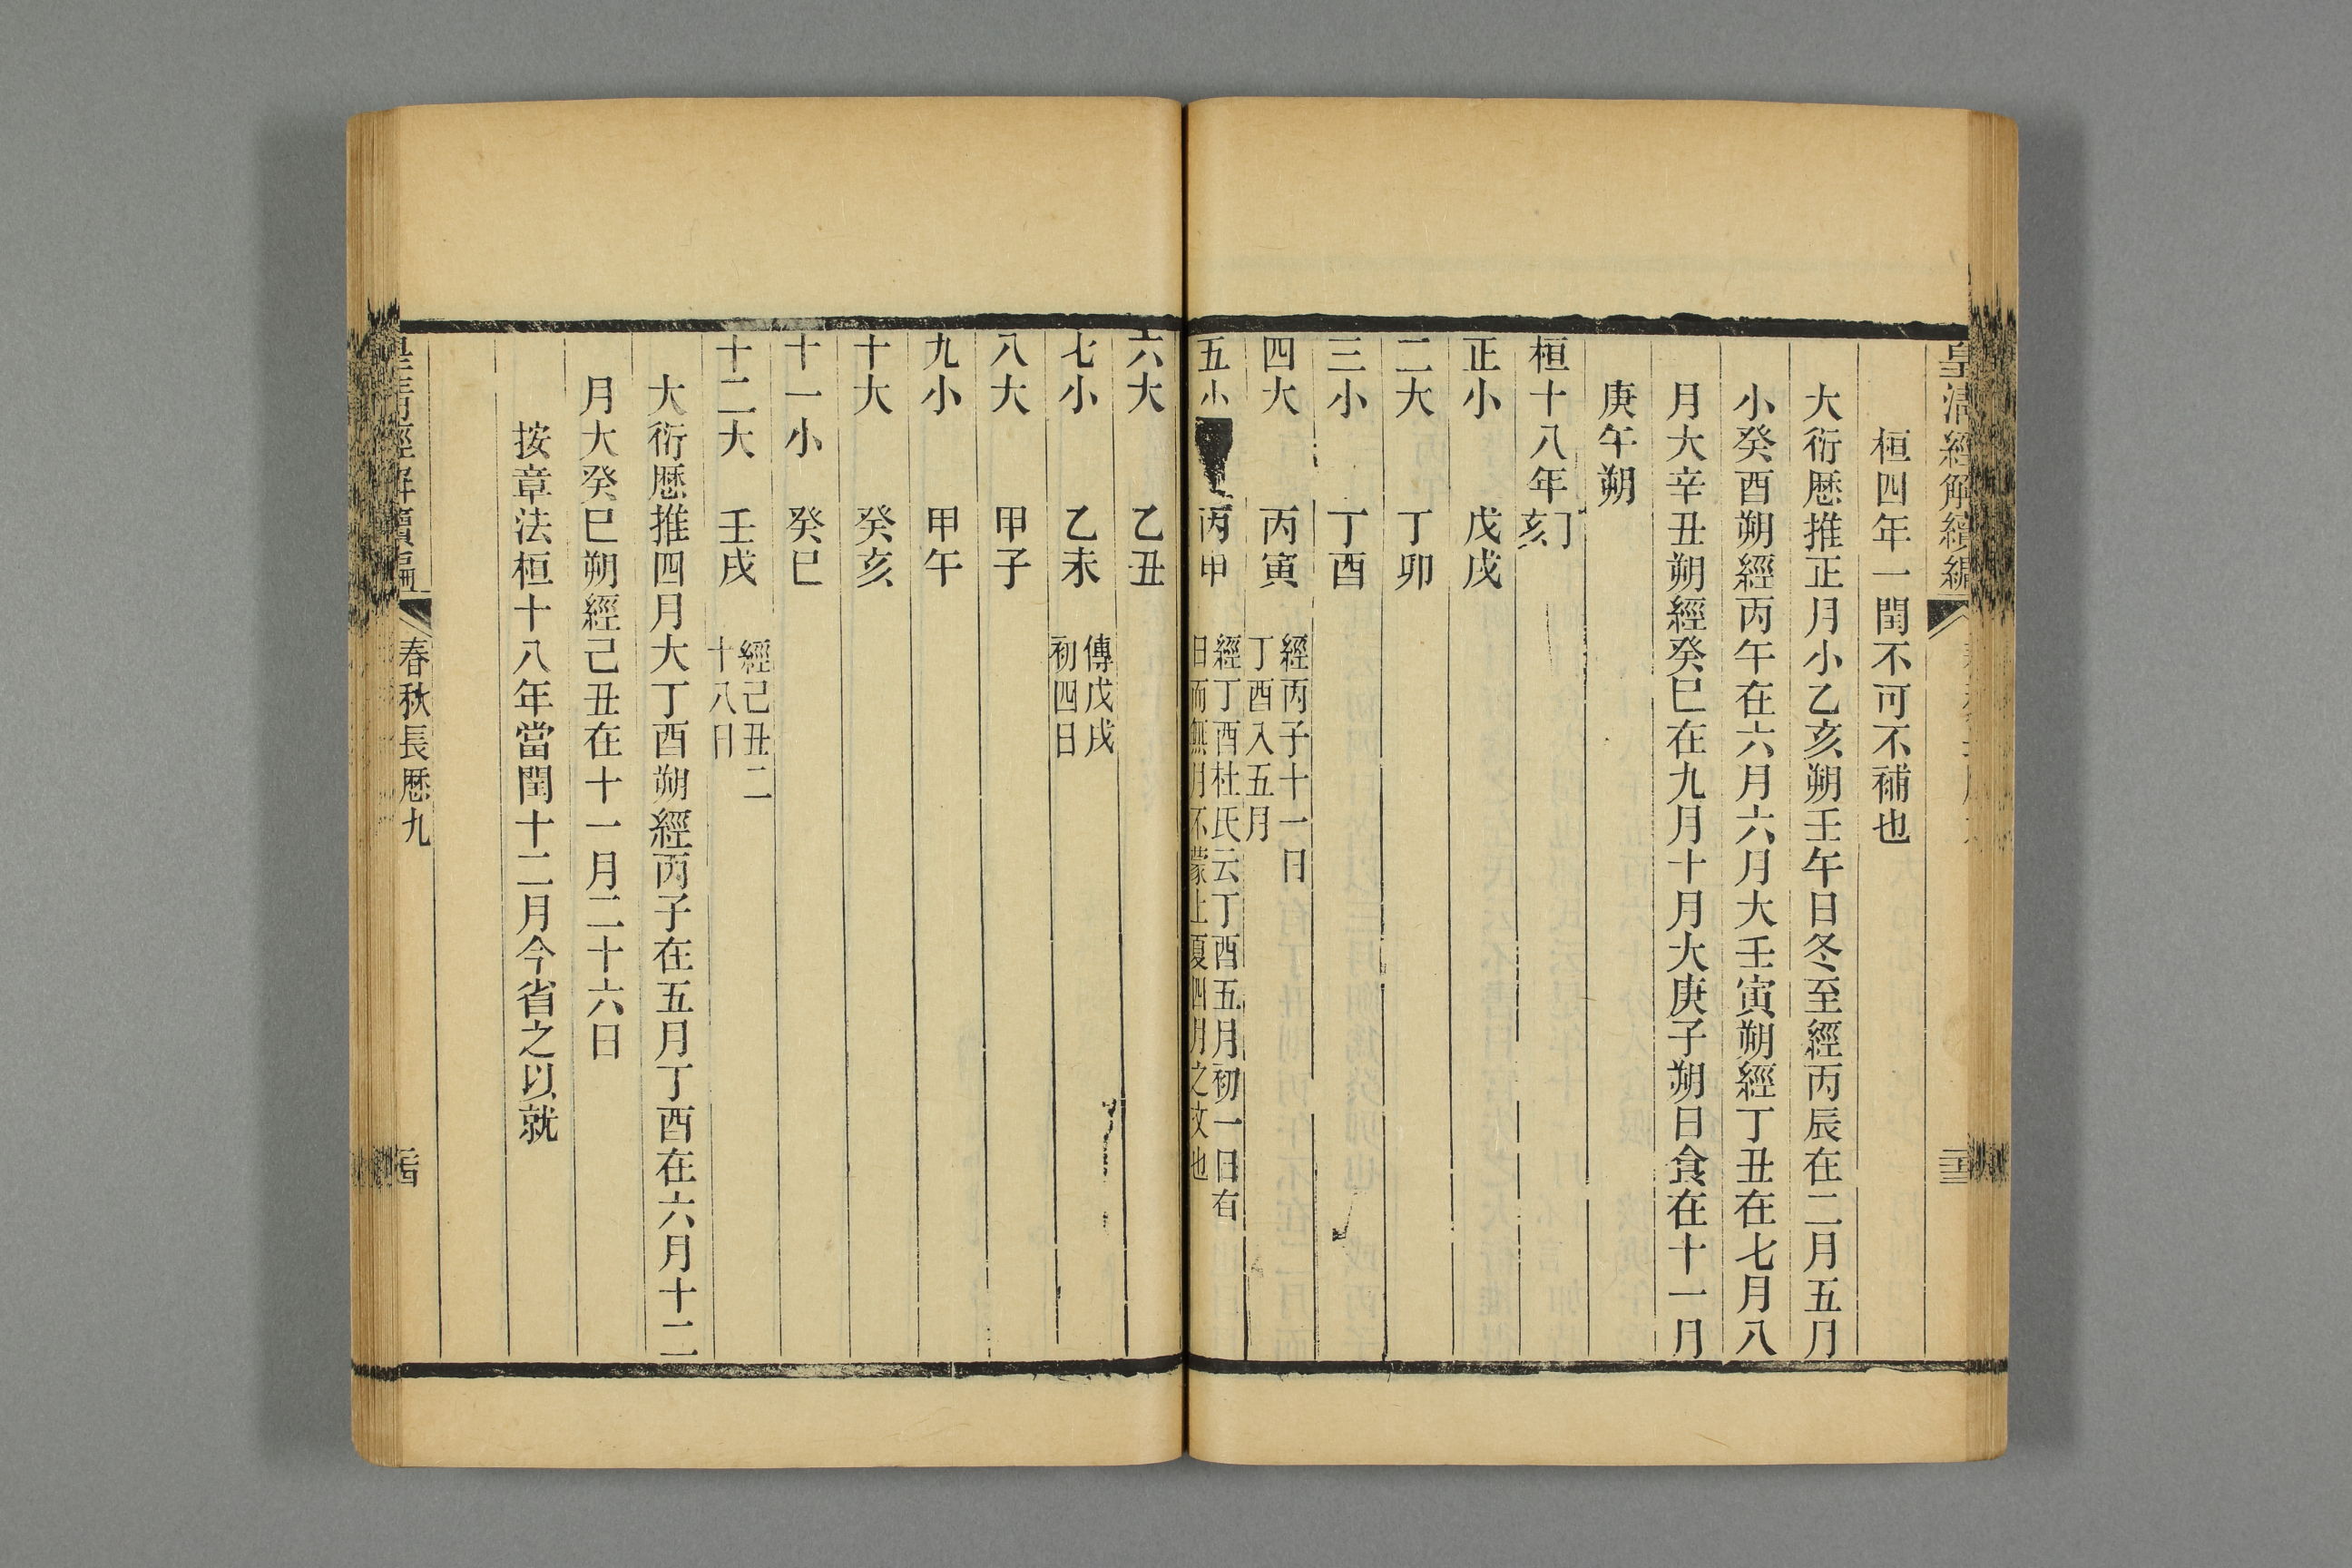 皇清經解續編
桓四年一閏不可不補也
大衍厯推正月小乙亥朔壬午日冬至經丙辰在二月五月
小癸酉朔經丙午在六月六月大壬寅朔經丁丑在七月八
月大辛丑朔經癸巳在九月十月大庚子朔日食在十一月
庚午朔
桓十八年丁亥
正小 戊戌
二大 丁卯
三小 丁酉
四大 丙寅 經丙子十一日
丁酉入五月
五小 丙申 經丁酉杜氏云丁酉五月初一日有
日而無月不蒙上夏四月之文也
六大 乙丑
七小 乙未 傳戊戌
初四日
八大 甲子
九小 甲午
十大 癸亥
十一小 癸巳
十二大 壬戌 經己丑二
十八日
大衍厯推四月大丁酉朔經丙子在五月丁酉在六月十二
月大癸巳朔經己丑在十一月二十六日
按章法桓十八年當閏十二月今省之以就
皇清經解續編 春秋長厯九